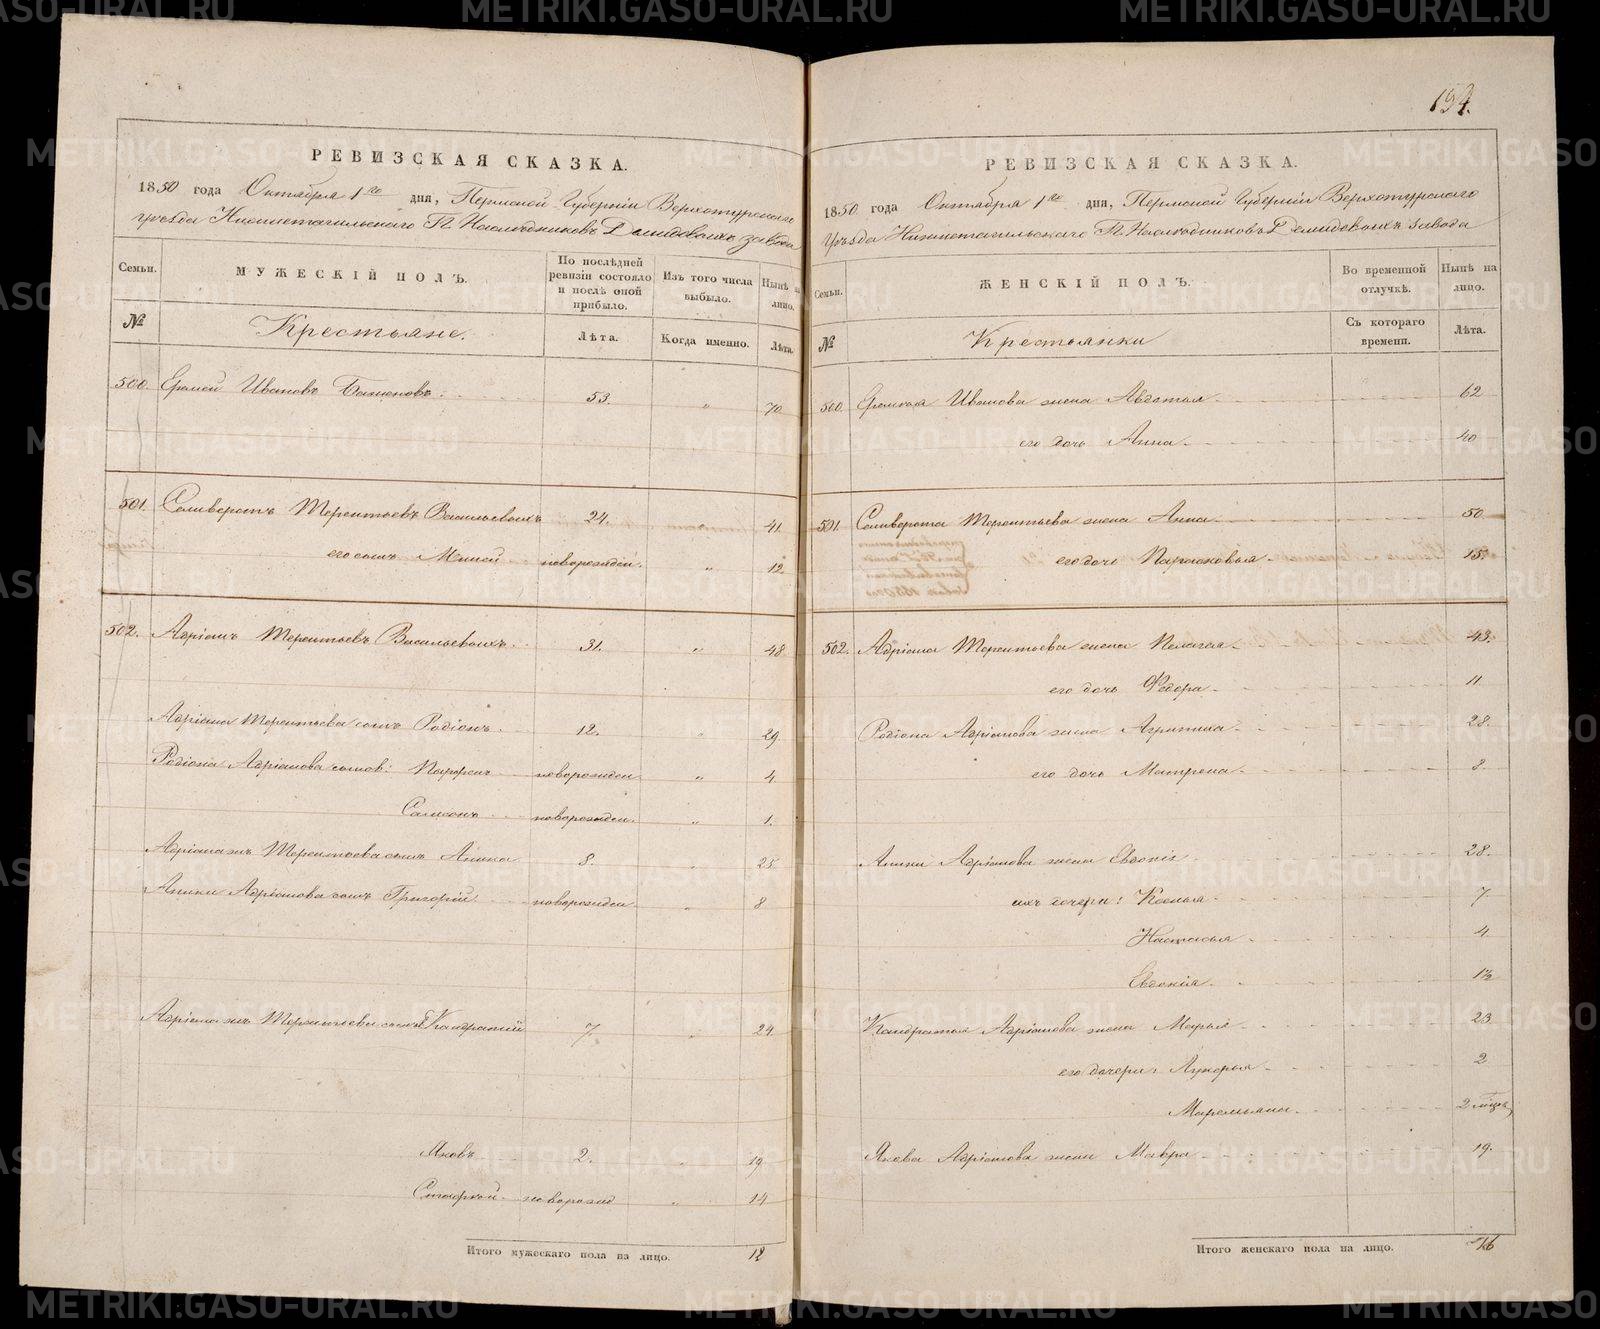 194.
РЕВИЗСКАЯ СКАЗКА.
1850 года Октября 1го дня, Пермской Губерніи Верхотурскаго
Уѣзда Нижнетагильскаго Г.г. Наслѣдниковъ Демидовыхъ завода
Семьи.
МУЖЕСКІЙ ПОЛЪ.
По послѣдней ревизіи состояло и послѣ оной прибыло.
Изъ того числа выбыло.
Нынѣ на лицо.
№ Крестьяне. Лѣта. Когда именно. Лѣта.
500. Ермей Ивановъ 53. „ 70
501. Селиверстъ Терентьевъ Васильевыхъ 24. 41
его сынъ Миней новорожден. „ 12
502. Адріанъ Терентьевъ Васильевыхъ 31. „ 48
Адріана Терентьева сынъ Родіонъ 12. „ 29
Родіона Адріанова сынов: Парфенъ новорожден „ 4
Самсонъ новорожден. „ 1.
Адріана жъ Терентьева сынъ Аника 8. „ 25
Аники Адріанова сынъ Григорій новорожден. „ 8
Адріана жъ Терентьева сынъ Кандратій 7. „ 24
Яковъ 2. „ 19
новорожд „ 14
Итого мужескаго пола на лицо. 12
РЕВИЗСКАЯ СКАЗКА.
1850 года Октября 1го дня, Пермской Губерніи Верхотурскаго
Уѣзда Нижнетагильскаго Г.г. Наслѣдниковъ Демидовыхъ завода
Семьи.
ЖЕНСКІЙ ПОЛЪ.
Во временной отлучкѣ.
Нынѣ на лицо.
№ Крестьянки Съ котораго времени. Лѣта.
500. Ивановa жена Авдотья 62
его дочь Анна 40
501. Селиверста Терентьева жена Анна 50
его дочь Парасковья 15
502. Адріана Терентьева жена Пелагея 43.
его дочь Федора 11
Родіона Адріанова жена Агрипина 28.
его дочь Матрена 2.
Аники Адріанова жена Евдокія 28.
ихъ дочери: Ксенья 7
Настасья 4
Евдокія 1½
Кандратья Адріанова жена Марья 23
его дочери: Лукерья 2
Маремьяна 2 мѣсяц
Якова Адріанова жена Мавра 19.
Итого женскаго пола на лицо. 16
METRIKI.GASO-URAL.RU